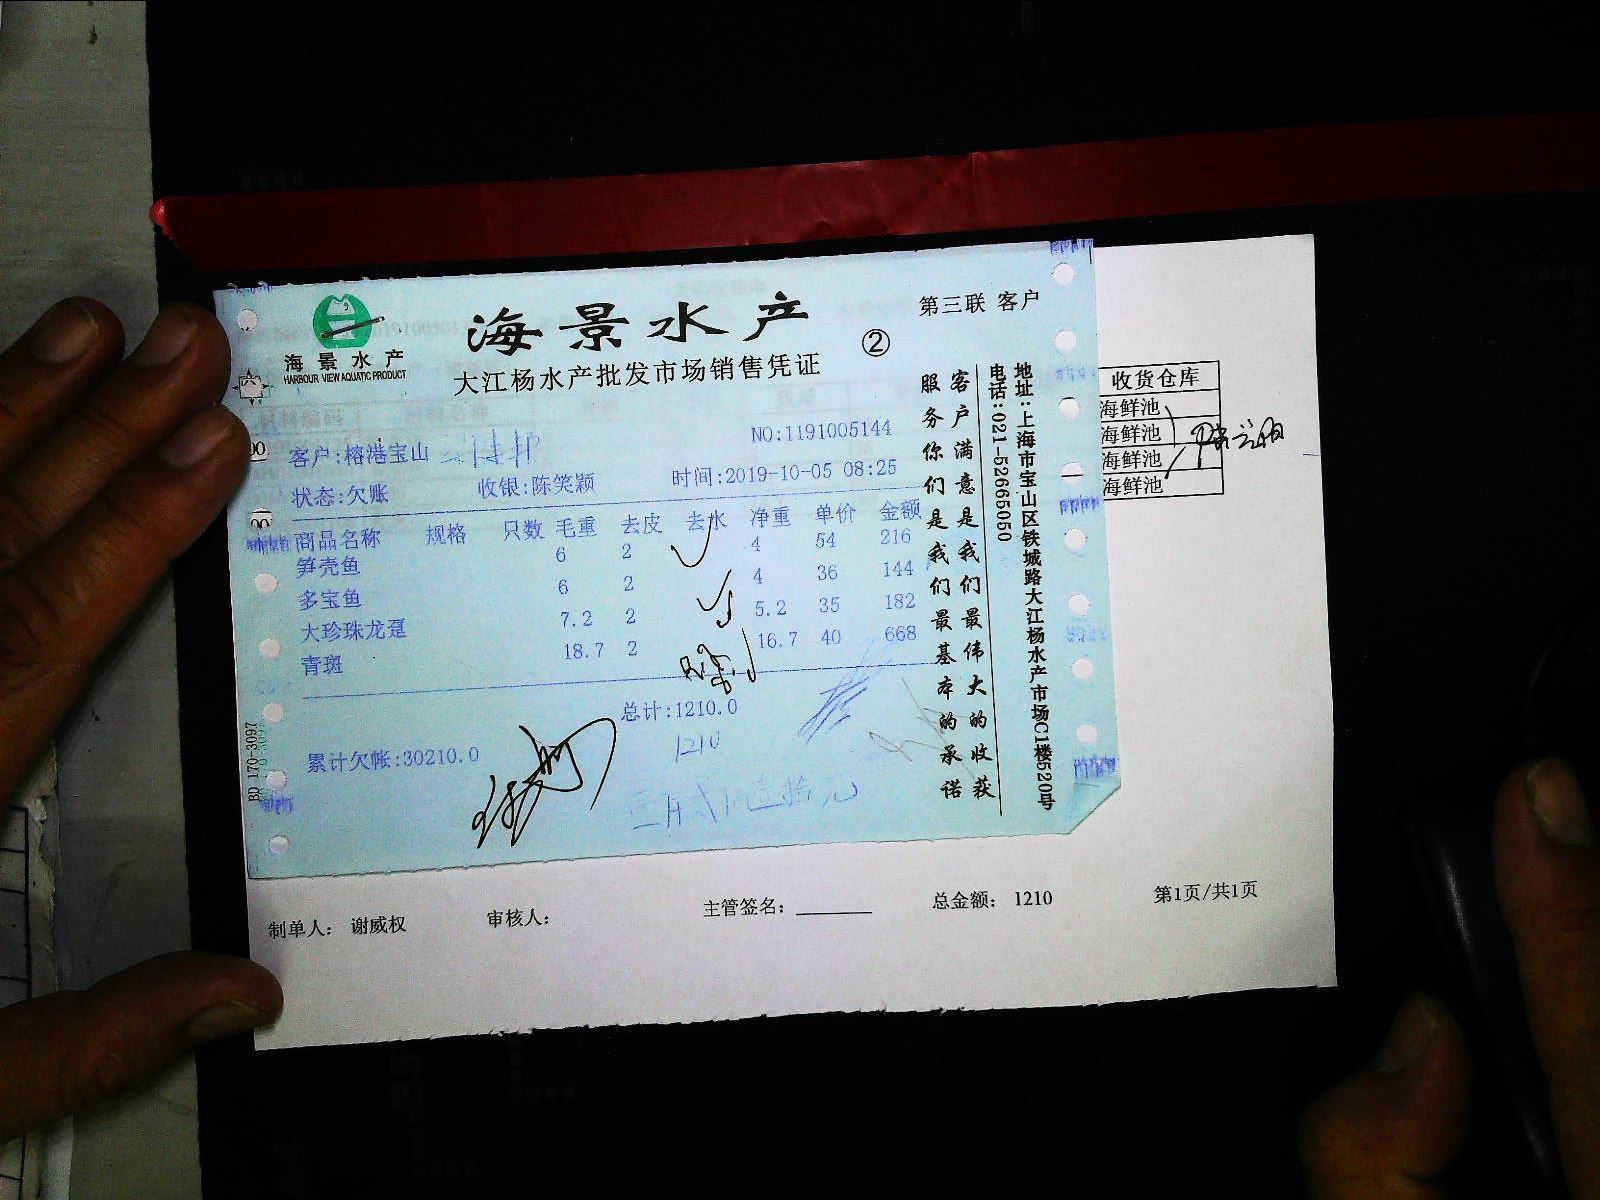 海景水产
HARBOUR VIEW AQUATIC PRODUCT
海景水产
大江杨水产批发市场销售凭证
②
第三联 客户
NO:1191005144
客户:榕港宝山
状态:欠账 收银:陈笑颖 时间:2019-10-05 08:25
商品名称 规格 只数 毛重 去皮 去水 净重 单价 金额
笋壳鱼 6 2 4 54 216
多宝鱼 6 2 4 36 144
大珍珠龙趸 7.2 2 5.2 35 182
青斑 18.7 2 16.7 40 668
总计:1210.0
1210
累计欠帐:30210.0
BD 170-3097
客户满意是我们最伟大的收获
服务你们是我们最基本的承诺
地址:上海市宝山区铁城路大江杨水产市场C1楼520号
电话:021-52665050
收货仓库
海鲜池
海鲜池
海鲜池
海鲜池
制单人: 谢威权 审核人: 主管签名: 总金额: 1210 第1页/共1页